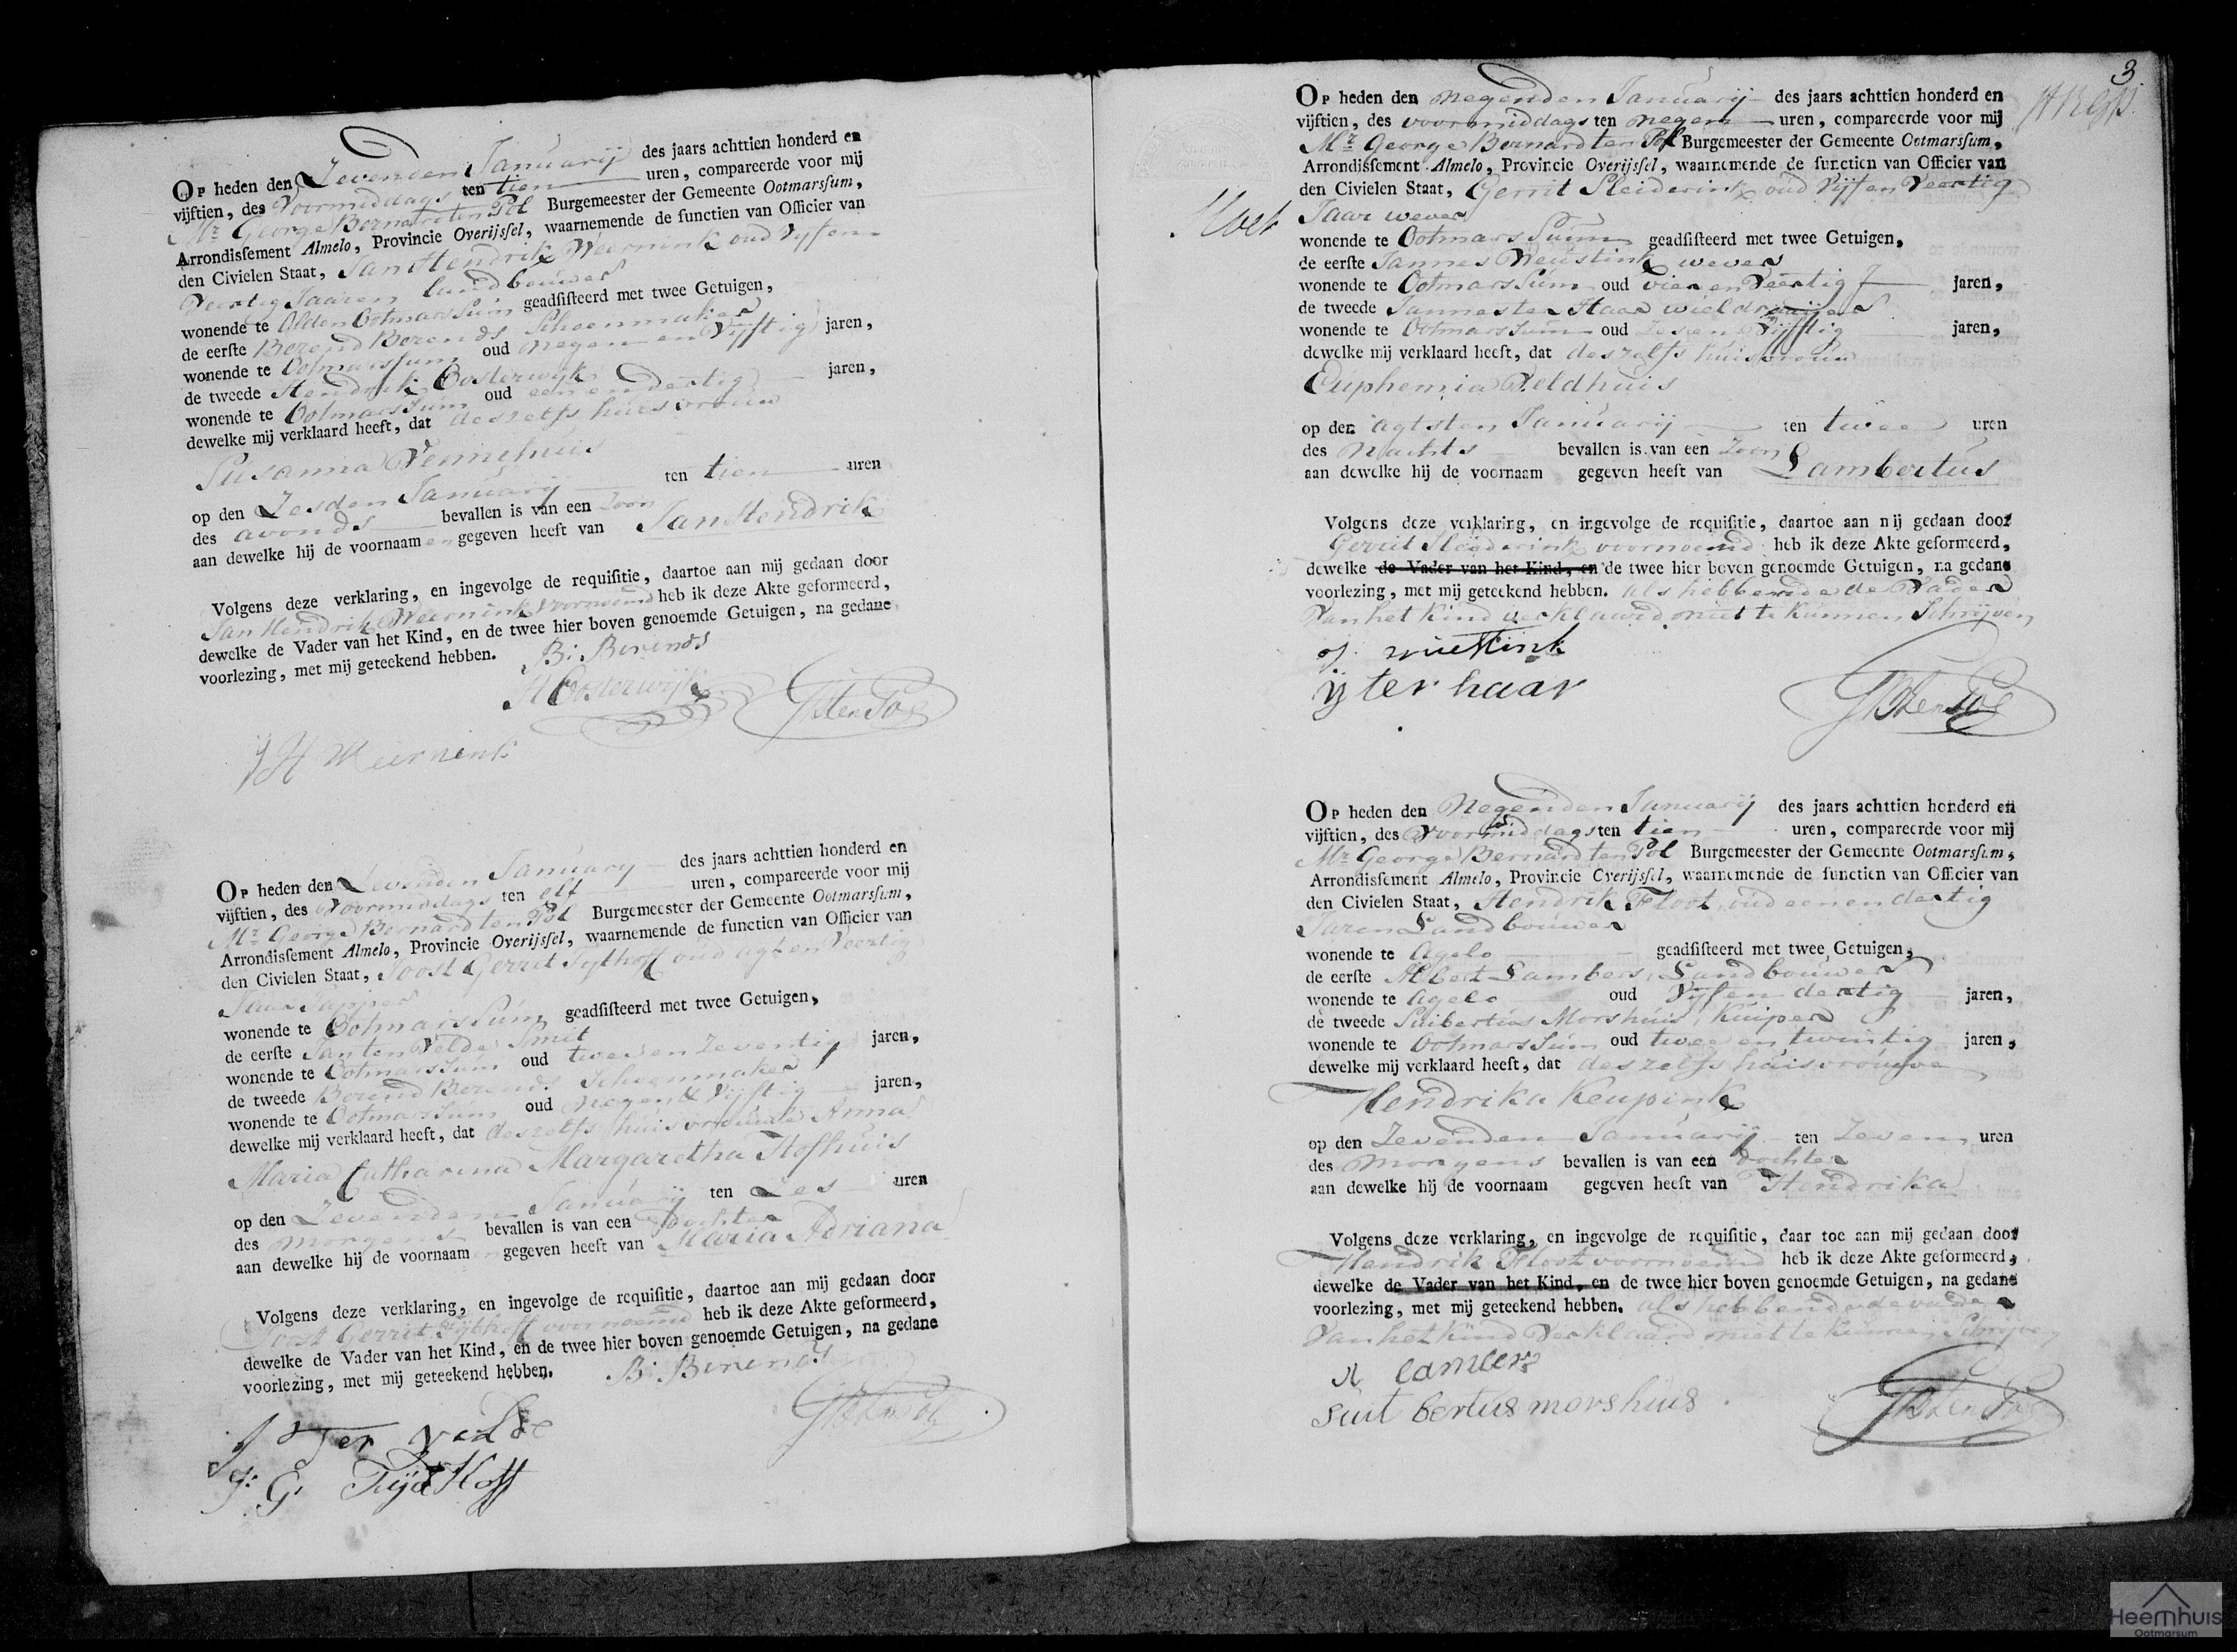 Op heden den Zevenden Januarij des jaars achttien honderd en
vijftien, des Voormiddags ten tien uren, compareerde voor mij
Mr. George Bernard ten Pol Burgemeester der Gemeente Ootmarssum,
Arrondissement Almelo, Provincie Overijssel, waarnemende de functien van Officier van
den Civielen Staat, Jan Hendrik Weernink oud Vyf en
Veertig Jaaren landbouwer
wonende te Olden Ootmarssum geadsisteerd met twee Getuigen,
de eerste Berend Berends Schoenmaker
wonende te Ootmarssum oud negen en Vyftig jaren,
de tweede Hendrik Oosterwyk
wonende te Ootmarssum oud een en dertig jaren,
dewelke mij verklaard heeft, dat deszelfs huisvrouw
Susanna Vennehuis
op den Zesden Januarij ten tien uren
des avonds bevallen is van een Zoon
aan dewelke hij de voornaamen gegeven heeft van Jan Hendrik
Volgens deze verklaring, en ingevolge de requisitie, daartoe aan mij gedaan door
Jan Hendrik Weernink voornoemd heb ik deze Akte geformeerd,
dewelke de Vader van het Kind, en de twee hier boven genoemde Getuigen, na gedane
voorlezing, met mij geteekend hebben. B: Berends
H Oosterwijk GB ten Pol
J H Weernink
Op heden den Zevenden January des jaars achttien honderd en
vijftien, des Voormiddags ten elf uren, compareerde voor mij
Mr. George Bernard ten Pol Burgemeester der Gemeente Ootmarssum,
Arrondissement Almelo, Provincie Overijssel, waarnemende de functien van Officier van
den Civielen Staat, Joost Gerrit Tythoff oud agt en Veertig
Jaar Tapper
wonende te Ootmarssum geadsisteerd met twee Getuigen,
de eerste Jan ten Velde Smit
wonende te Ootmarssum oud twee en Zeventig jaren,
de tweede Berend Berends Schoenmaker
wonende te Ootmarssum oud negen & Vyftig jaren,
dewelke mij verklaard heeft, dat deszelfs huisvrouwe Anna
Maria Catharina Margaretha Hofhuis
op den Zevenden Januarij ten Zes uren
des morgens bevallen is van een Dochter
aan dewelke hij de voornaamen gegeven heeft van Maria Adriana
Volgens deze verklaring, en ingevolge de requisitie, daartoe aan mij gedaan door
Joost Gerrit Tythoff voornoemd heb ik deze Akte geformeerd,
dewelke de Vader van het Kind, en de twee hier boven genoemde Getuigen, na gedane
voorlezing, met mij geteekend hebben. B: Berends
GB ten Pol
J Ter velde
J: G: TijdHoff
3
Op heden den negenden Januarij des jaars achttien honderd en
vijftien, des voormiddags ten negen uren, compareerde voor mij
Mr. George Bernard ten Pol Burgemeester der Gemeente Ootmarssum,
Arrondissement Almelo, Provincie Overijssel, waarnemende de functien van Officier van
den Civielen Staat, Gerrit Sleiderink oud Vijf en Veertig
Jaar wever
wonende te Ootmarssum geadsisteerd met twee Getuigen,
de eerste Jannes Neustink wever
wonende te Ootmarssum oud vier en Veertig jaren,
de tweede Jannes ter Haar wieldraaijer
wonende te Ootmarssum oud Zes en Vijftig jaren,
dewelke mij verklaard heeft, dat deszelfs huisvrouw
Euphemia Veldhuis
op den agtsten Januarij ten twee uren
des Nachts bevallen is van een Zoon
aan dewelke hij de voornaam gegeven heeft van Lambertus
Volgens deze verklaring, en ingevolge de requisitie, daartoe aan mij gedaan door
Gerrit Sleiderink voornoemd heb ik deze Akte geformeerd,
dewelke de Vader van het Kind, en de twee hier boven genoemde Getuigen, na gedane
voorlezing, met mij geteekend hebben. als hebbende de Vader
van het Kind verklaard niet te kunnen Schryven
J. niestink
ij ter haar
GB ten Pol
Op heden den Negenden Januarij des jaars achttien honderd en
vijftien, des Voormiddags ten tien uren, compareerde voor mij
Mr. George Bernard ten Pol Burgemeester der Gemeente Ootmarssum,
Arrondissement Almelo, Provincie Overijssel, waarnemende de functien van Officier van
den Civielen Staat, Hendrik Floot, oud een en dertig
Jaren Landbouwer
wonende te Agelo geadsisteerd met twee Getuigen,
de eerste Albert Lambers, Landbouwer
wonende te Agelo oud Vijf en dertig jaren,
de tweede Suibertus Morshuis, Kuiper
wonende te Ootmarssum oud twee en twintig jaren,
dewelke mij verklaard heeft, dat deszelfs huisvrouwe
Hendrika Keupink
op den Zevenden Januarij ten Zeven uren
des morgens bevallen is van een dochter
aan dewelke hij de voornaam gegeven heeft van Hendrika
Volgens deze verklaring, en ingevolge de requisitie, daar toe aan mij gedaan door
Hendrik Floot voornoemd heb ik deze Akte geformeerd,
dewelke de Vader van het Kind, en de twee hier boven genoemde Getuigen, na gedane
voorlezing, met mij geteekend hebben. als hebbende de vader
van het Kind Verklaard niet te kunnen Schrijven
A lambers
Suit bertus morshuis
GB ten Pol
Heemhuis
Ootmarsum